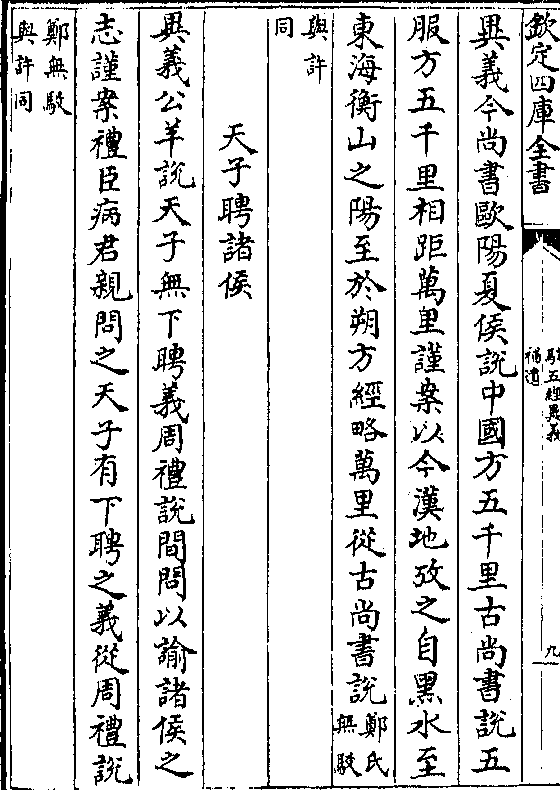 欽定四庫全書
駁五經異義
補遺
九
異義今尚書歐陽夏侯說中國方五千里古尚書說五
服方五千里相距萬里謹案以今漢地攷之自黑水至
東海衡山之陽至於朔方經略萬里從古尚書說鄭氏無駁
與許同
天子聘諸侯
異義公羊說天子無下聘義周禮說間問以諭諸侯之
志謹案禮臣病君親問之天子有下聘之義從周禮說
鄭無駁
與許同